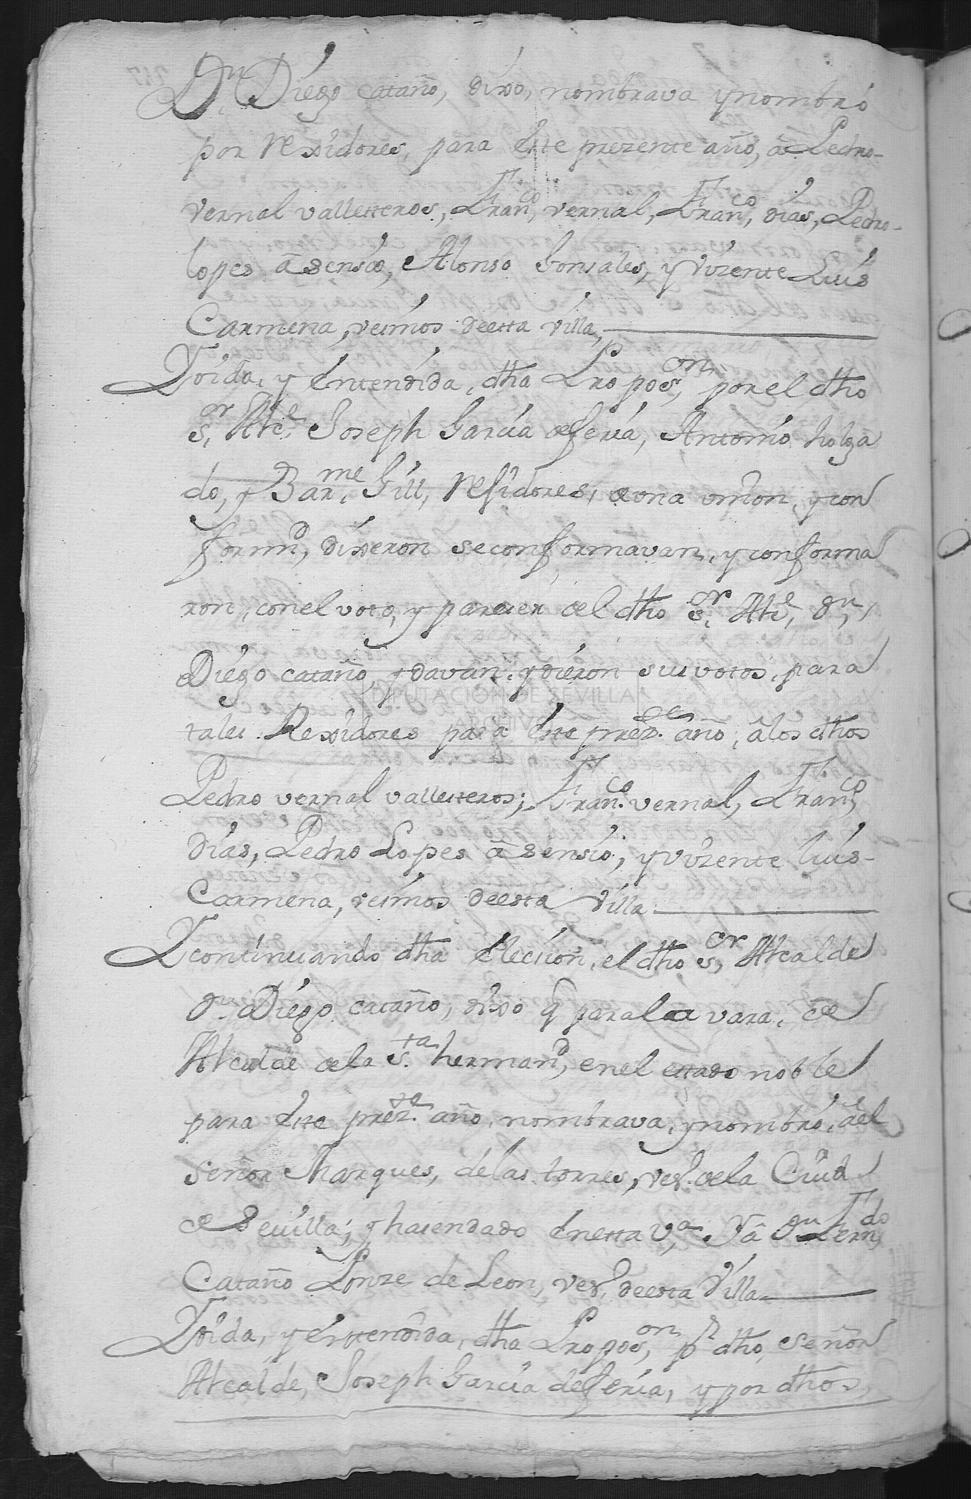 Dn Diego Cataño, dixo, nombrava y nombró
por Rexidores, para Este prezente año, â Pedro
vernal vallesteros, Franco, vernal, Franco, días, Pedro
lopes âsensio, Alonso Gonsales, y Vizente Luis
Carmena, vecinos deesta villa,
Yoida, y Entendida, dha Propoon, por el dho
sor, Alde Joseph García deferia, Antonio holga
do, y Barme Gill, Residores, de una union, y con
formd, dixeron se conformavan, y conforma
ron, con el voto, y parecer del dho sor Alde, dn,
Diego cataño, y davan, y dieron sus votos, para
tales Rexidores para Este prezte año, â los dhos
Pedro vernal vallesteros; Franco vernal, Franco
Días, Pedro Lopes âsensio, y Vizente luis
Carmena, vecinos deesta villa
Y continuando dha Elección, el dho sor Alcalde
dn Diego cataño, dixo q para la vara, de
Alcalde de la sta hermand, en el estado noble
para Este prezte año, nombrava, y nombró, âel
Señor Marques, de las torres, vezo de la Ciud
de Sevilla; y hacendado Enesta va Yâ dn Ferndo
Cataño Ponze de Leon, vezo deesta Villa
Yoida, y Entendida, dha Propoon, pr dho, señor
Alcalde, Joseph García deferia, y por dhos,
DIPUTACION DE SEVILLA
ARCHIVO